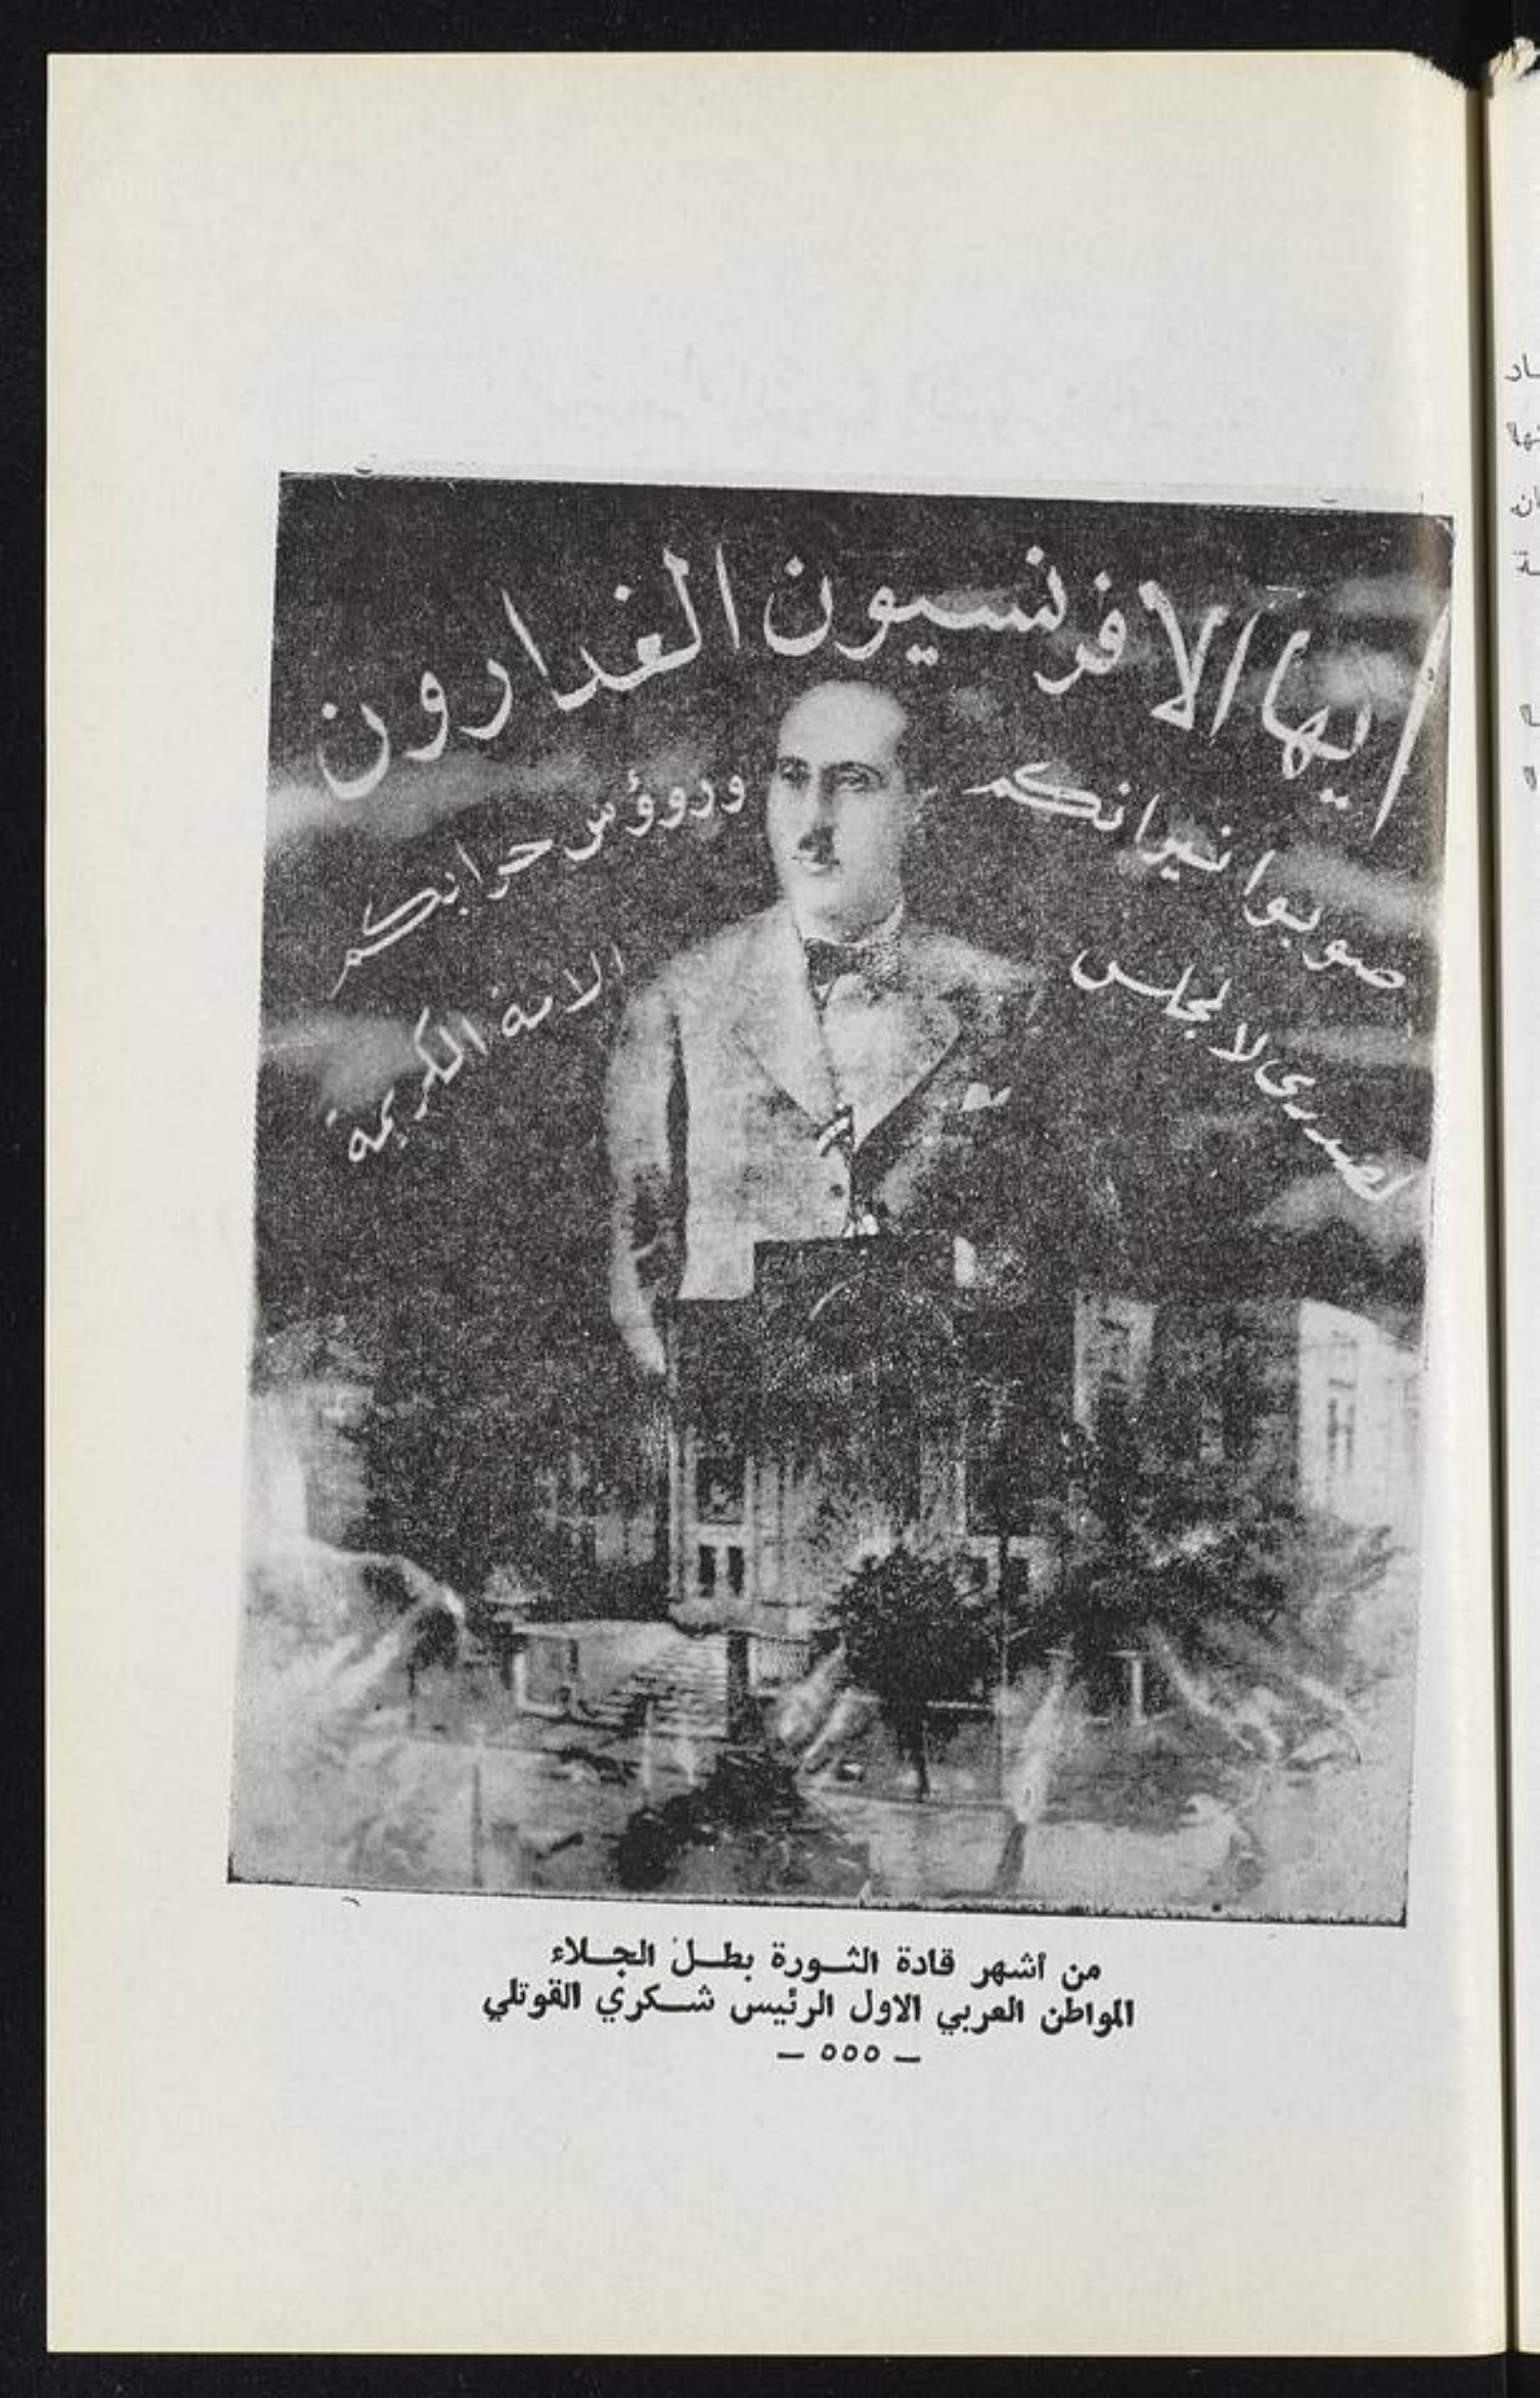 ايها الافرنسيون الغدارون
صوبوا نيرانكم ورووؤس حرابكم
لصدري لا لمجلس الامة الكريمة
من أشهر قادة الثورة بطل الجلاء
المواطن العربي الاول الرئيس شكري القوتلي
— ٥٥٥ —